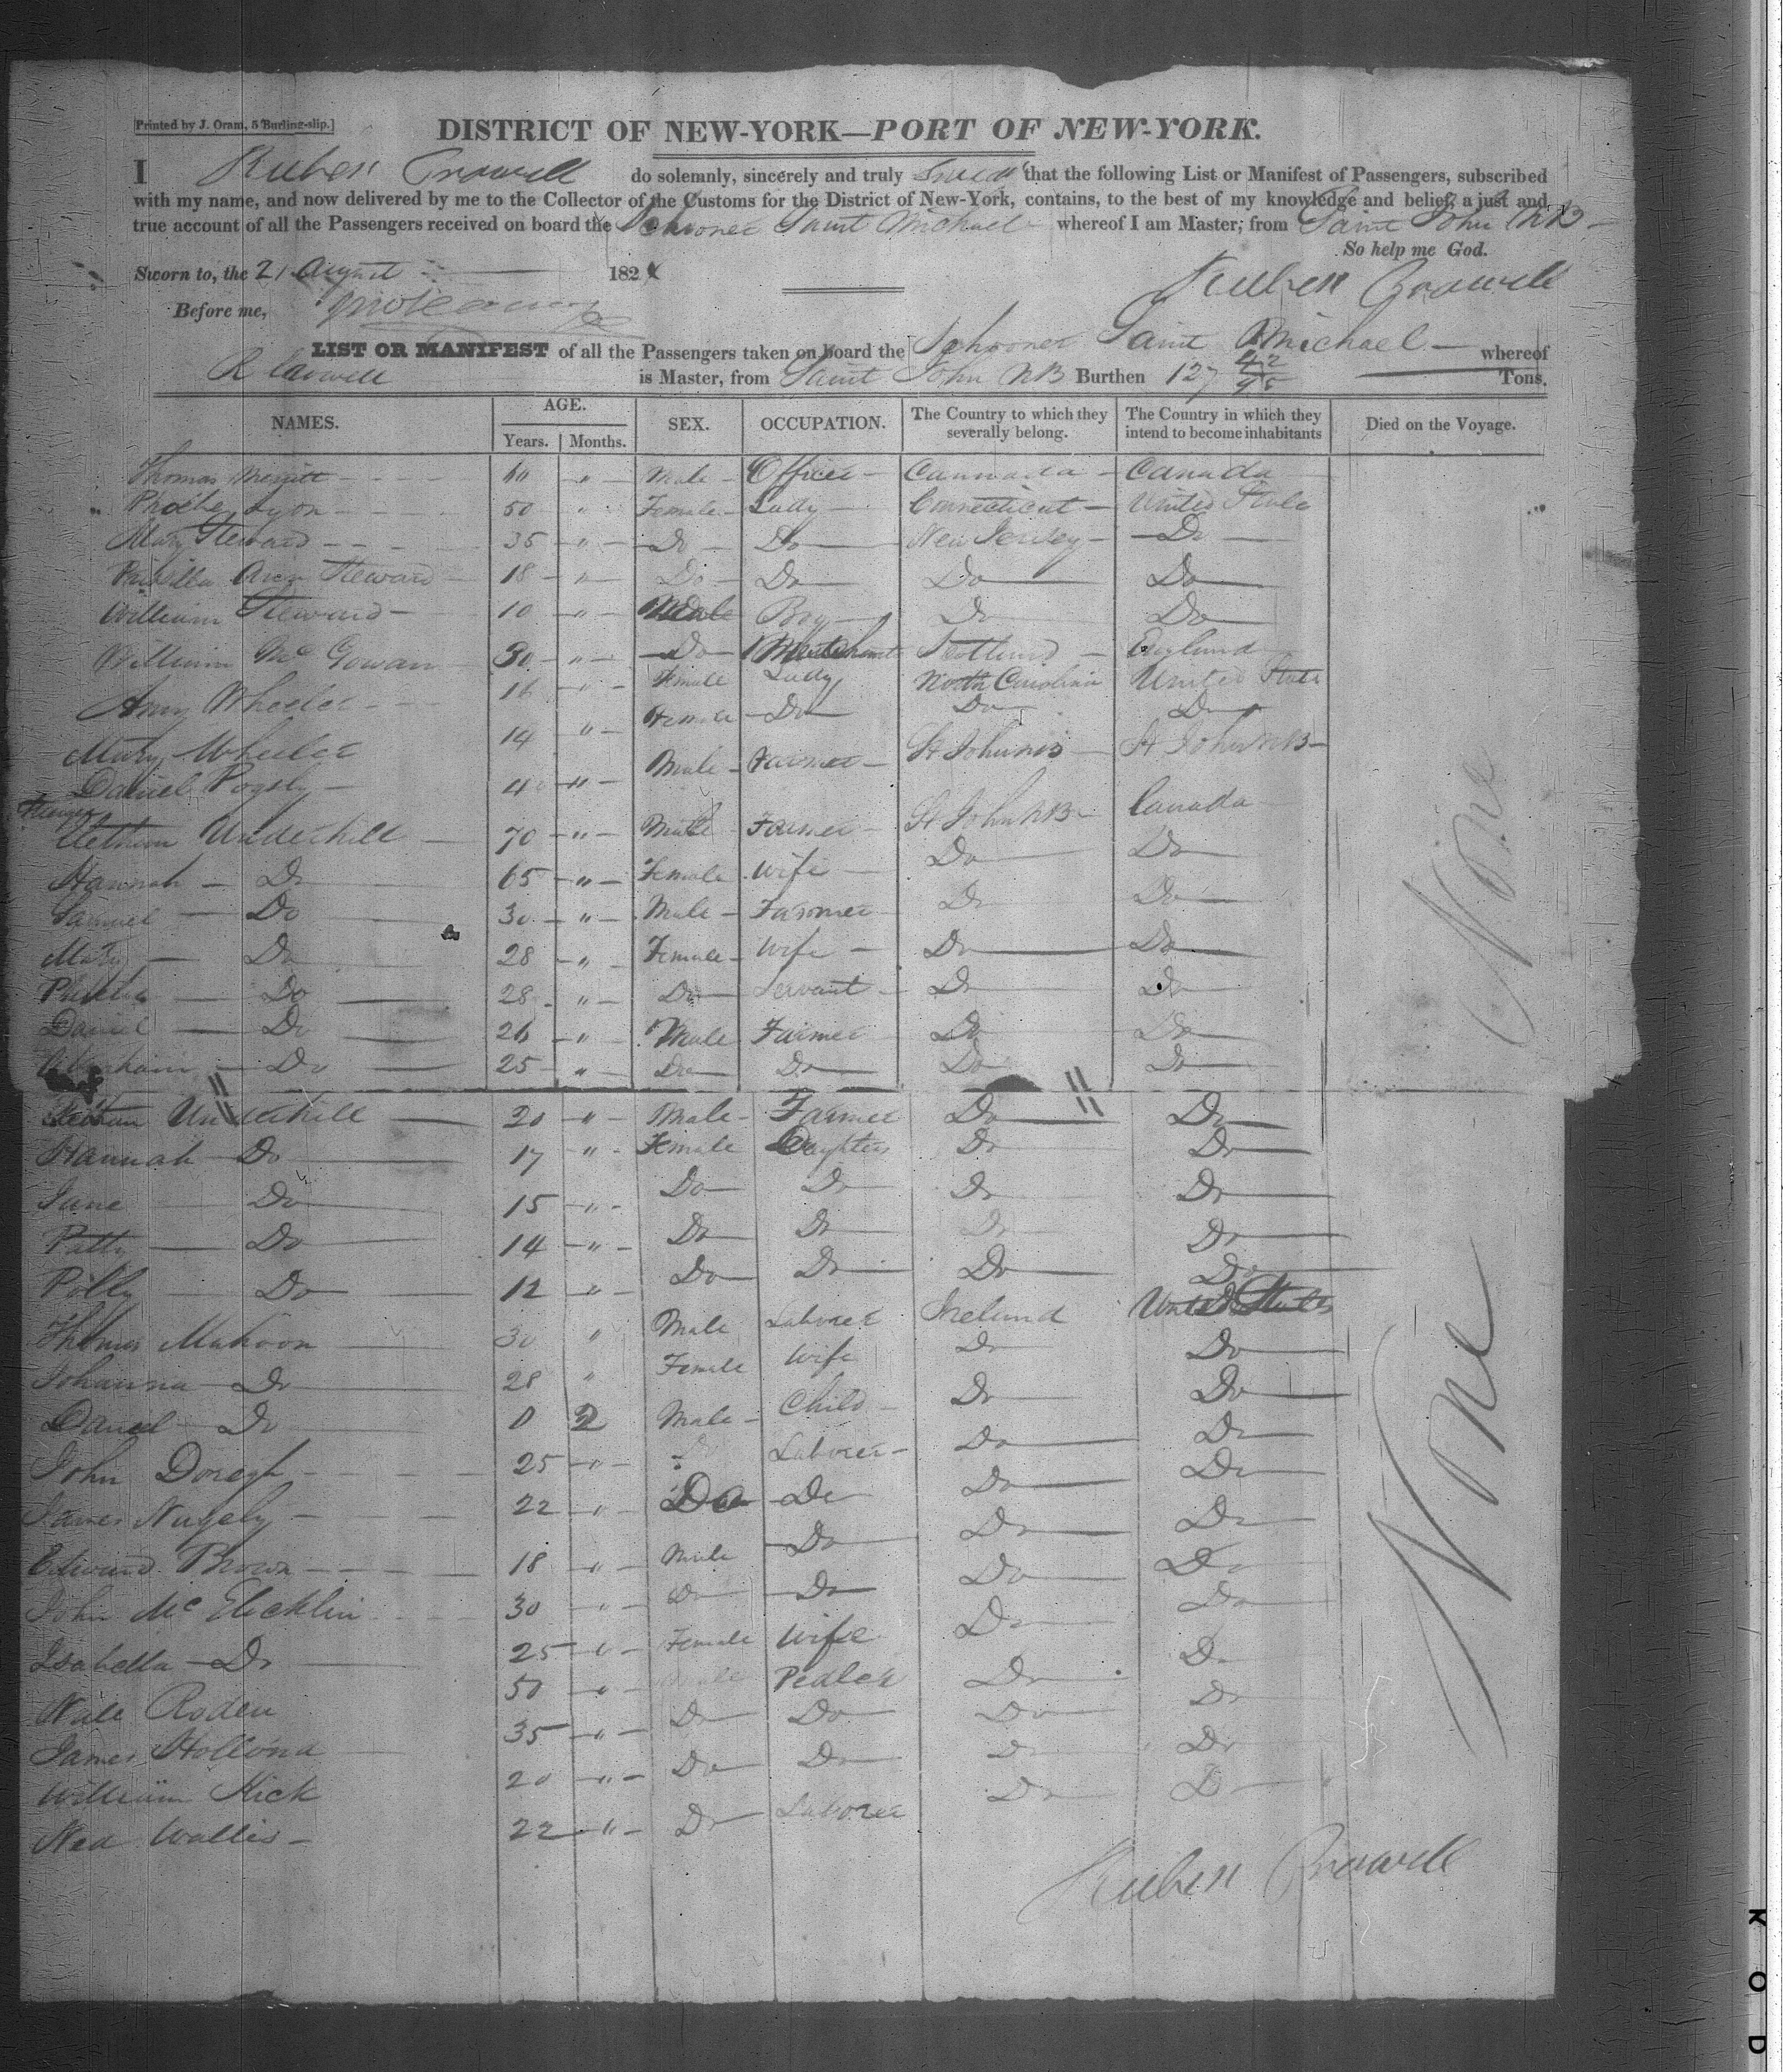 [Printed by J. Oram, 5 Burling-slip.]
DISTRICT OF NEW-YORK—PORT OF NEW-YORK.
I Ruben Crowell do solemnly, sincerely and truly that the following List or Manifest of Passengers, subscribed
with my name, and now delivered by me to the Collector of the Customs for the District of New-York, contains, to the best of my knowledge and belief, a just and
true account of all the Passengers received on board the Schooner Saint Michael whereof I am Master, from Saint John NB
So help me God.
Sworn to, the 21 August 182
Before me,
Ruben Crowell
LIST OR MANIFEST of all the Passengers taken on board the Schooner Saint Michael whereof
R Crowell is Master, from Saint John NB Burthen 127 42/95 Tons.
NAMES. AGE. Years. Months. SEX. OCCUPATION. The Country to which they severally belong. The Country in which they intend to become inhabitants Died on the Voyage.
Thomas Merritt 60 " Male Officer Cannada Canada
Phoebe Lyon 50 " Female Lady Connecticut United State
Mary Steward 35 " Do Do New Jersey Do
Ann Steward 18 " Do Do Do Do
William Steward 10 " Male Boy Do Do
William McGowan 30 " Do Scotland England
Amy Wheeler 16 " Female Lady North Carolina United State
Mary Wheeler 14 " Female Do Do Do
Daniel Pogsly 40 " Male Farmer St John NB St John NB
Underhill 70 " Male Farmer St John NB Canada
Hannah Do 65 " Female Wife Do Do
Samuel Do 30 " Male Farmer Do Do
Mary Do 28 " Female Wife Do Do
Do 28 " Do Servant Do Do
Daniel Do 26 " Male Farmer Do Do
Abraham Do 25 " Do Do Do Do
None
Underhill 20 " Male Farmer Do Do
Hannah Do 17 " Female Daughter Do Do
Jane Do 15 " Do Do Do Do
Patty Do 14 " Do Do Do Do
Polly Do 12 " Do Do Do Do
Thomas Mahoon 30 " Male Laborer Ireland United States
Johanna Do 28 " Female Wife Do Do
Daniel Do 0 2 Male Child Do Do
John 25 " Do Laborer Do Do
James Nugely 22 " Do Do Do Do
Edward Brown 18 " Male Do Do Do
John Mc 30 " Do Do Do Do
Isabella Do 25 " Female Wife Do Do
Roden 50 " Male Pedler Do Do
James Hollond 35 " Do Do Do Do
William Kick 20 " Do Do Do Do
Ned Wallis 22 " Do Laborer Do Do
None
Ruben Crowell
K O D